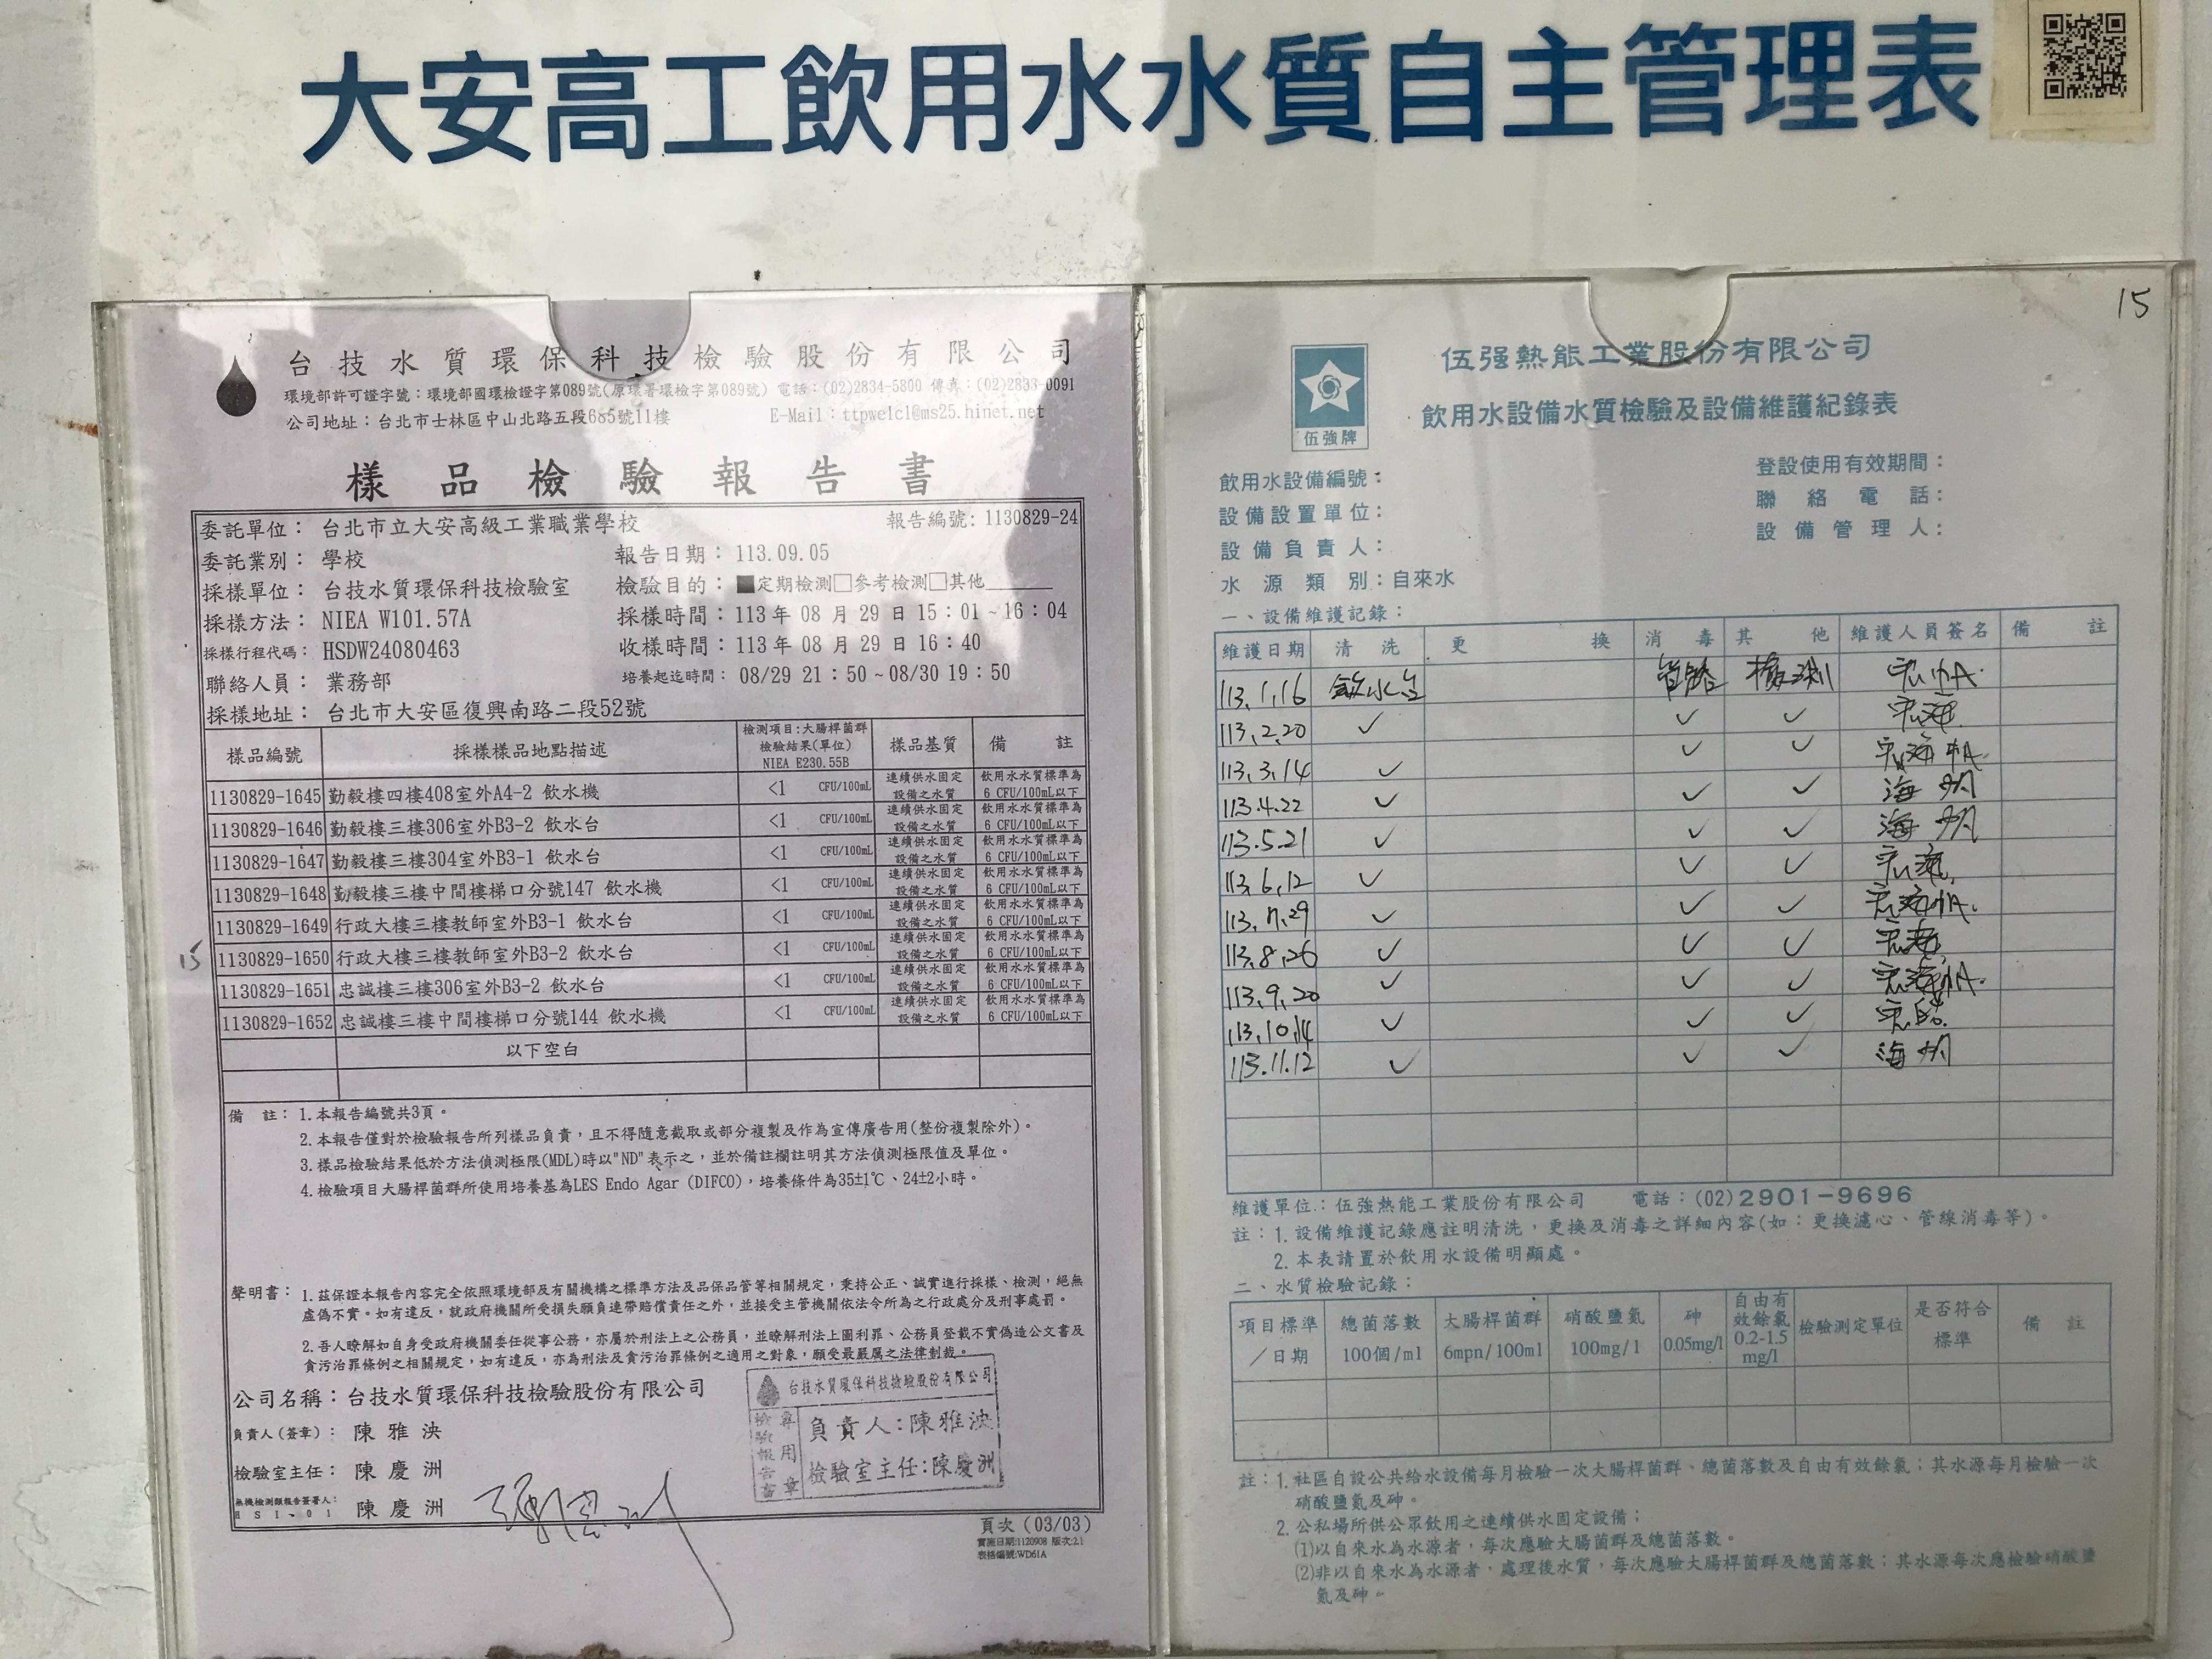 大安高工飲用水水質自主管理表
台技水質環保科技檢驗股份有限公司
環境部許可證字號：環境部國環檢證字第089號(原環署環檢字第089號) 電話：(02)2834-5800 傳真：(02)2833-0091
公司地址：台北市士林區中山北路五段685號11樓 E-Mail：ttpwelcl@ms25.hinet.net
樣品檢驗報告書
委託單位：台北市立大安高級工業職業學校 報告編號：1130829-24
委託業別：學校 報告日期：113.09.05
採樣單位：台技水質環保科技檢驗室 檢驗目的：■定期檢測□參考檢測□其他
採樣方法：NIEA W101.57A 採樣時間：113年 08 月 29 日 15：01 ~ 16：04
採樣行程代碼：HSDW24080463 收樣時間：113 年 08 月 29 日 16：40
聯絡人員：業務部 培養起迄時間：08/29 21：50 ~ 08/30 19：50
採樣地址：台北市大安區復興南路二段52號
樣品編號 採樣樣品地點描述 檢測項目：大腸桿菌群 檢驗結果(單位) NIEA E230.55B 樣品基質 備註
1130829-1645 勤毅樓四樓408室外A4-2 飲水機 <1 CFU/100mL 連續供水固定設備之水質 飲用水水質標準為6 CFU/100mL以下
1130829-1646 勤毅樓三樓306室外B3-2 飲水台 <1 CFU/100mL 連續供水固定設備之水質 飲用水水質標準為6 CFU/100mL以下
1130829-1647 勤毅樓三樓304室外B3-1 飲水台 <1 CFU/100mL 連續供水固定設備之水質 飲用水水質標準為6 CFU/100mL以下
1130829-1648 勤毅樓三樓中間樓梯口分號147 飲水機 <1 CFU/100mL 連續供水固定設備之水質 飲用水水質標準為6 CFU/100mL以下
1130829-1649 行政大樓三樓教師室外B3-1 飲水台 <1 CFU/100mL 連續供水固定設備之水質 飲用水水質標準為6 CFU/100mL以下
15 1130829-1650 行政大樓三樓教師室外B3-2 飲水台 <1 CFU/100mL 連續供水固定設備之水質 飲用水水質標準為6 CFU/100mL以下
1130829-1651 忠誠樓三樓306室外B3-2 飲水台 <1 CFU/100mL 連續供水固定設備之水質 飲用水水質標準為6 CFU/100mL以下
1130829-1652 忠誠樓三樓中間樓梯口分號144 飲水機 <1 CFU/100mL 連續供水固定設備之水質 飲用水水質標準為6 CFU/100mL以下
以下空白
備註：1.本報告編號共3頁。
2.本報告僅對於檢驗報告所列樣品負責，且不得隨意截取或部分複製及作為宣傳廣告用(整份複製除外)。
3.樣品檢驗結果低於方法偵測極限(MDL)時以"ND"表示之，並於備註欄註明其方法偵測極限值及單位。
4.檢驗項目大腸桿菌群所使用培養基為LES Endo Agar (DIFCO)，培養條件為35±1℃、24±2小時。
聲明書：1.茲保證本報告內容完全依照環境部及有關機構之標準方法及品保品管等相關規定，秉持公正、誠實進行採樣、檢測，絕無
虛偽不實。如有違反，就政府機關所受損失願負連帶賠償責任之外，並接受主管機關依法令所為之行政處分及刑事處罰。
2.吾人瞭解如自身受政府機關委任從事公務，亦屬於刑法上之公務員，並瞭解刑法上圖利罪、公務員登載不實偽造公文書及
貪污治罪條例之相關規定，如有違反，亦為刑法及貪污治罪條例之適用之對象，願受最嚴厲之法律制裁。
公司名稱：台技水質環保科技檢驗股份有限公司
負責人(簽章)：陳雅泱
檢驗室主任：陳慶洲
無機檢測類報告簽署人： 陳慶洲
HSI、01
台技水質環保科技檢驗股份有限公司
檢驗報告書專用章
負責人：陳雅泱
檢驗室主任：陳慶洲
頁次 (03/03)
實施日期:1120908 版次:2.1
表格編號:WD61A
15
伍強牌
伍强熱能工業股份有限公司
飲用水設備水質檢驗及設備維護紀錄表
飲用水設備編號： 登設使用有效期間：
設備設置單位： 聯絡電話：
設備負責人： 設備管理人：
水源類別：自來水
一、設備維護記錄：
維護日期 清洗 更換 消毒 其他 維護人員簽名 備註
113.1.16 飲水台 管路 檢測
113.2.20 ✓ ✓ ✓
113.3.14 ✓ ✓ ✓
113.4.22 ✓ ✓ ✓
113.5.21 ✓ ✓ ✓
113.6.12 ✓ ✓ ✓
113.7.29 ✓ ✓ ✓
113.8.26 ✓ ✓ ✓
113.9.20 ✓ ✓ ✓
113.10.14 ✓ ✓ ✓
113.11.12 ✓ ✓ ✓
維護單位：伍強熱能工業股份有限公司 電話：(02)2901-9696
註：1. 設備維護記錄應註明清洗，更換及消毒之詳細內容(如：更換濾心、管線消毒等)。
2. 本表請置於飲用水設備明顯處。
二、水質檢驗記錄：
項目標準／日期 總菌落數 100個/ml 大腸桿菌群 6mpn/100ml 硝酸鹽氮 100mg/l 砷 0.05mg/l 自由有效餘氯 0.2-1.5 mg/l 檢驗測定單位 是否符合標準 備註
註：1. 社區自設公共給水設備每月檢驗一次大腸桿菌群、總菌落數及自由有效餘氯；其水源每月檢驗一次
硝酸鹽氮及砷。
2. 公私場所供公眾飲用之連續供水固定設備；
(1)以自來水為水源者，每次應驗大腸菌群及總菌落數。
(2)非以自來水為水源者，處理後水質，每次應驗大腸桿菌群及總菌落數；其水源每次應檢驗硝酸鹽
氮及砷。